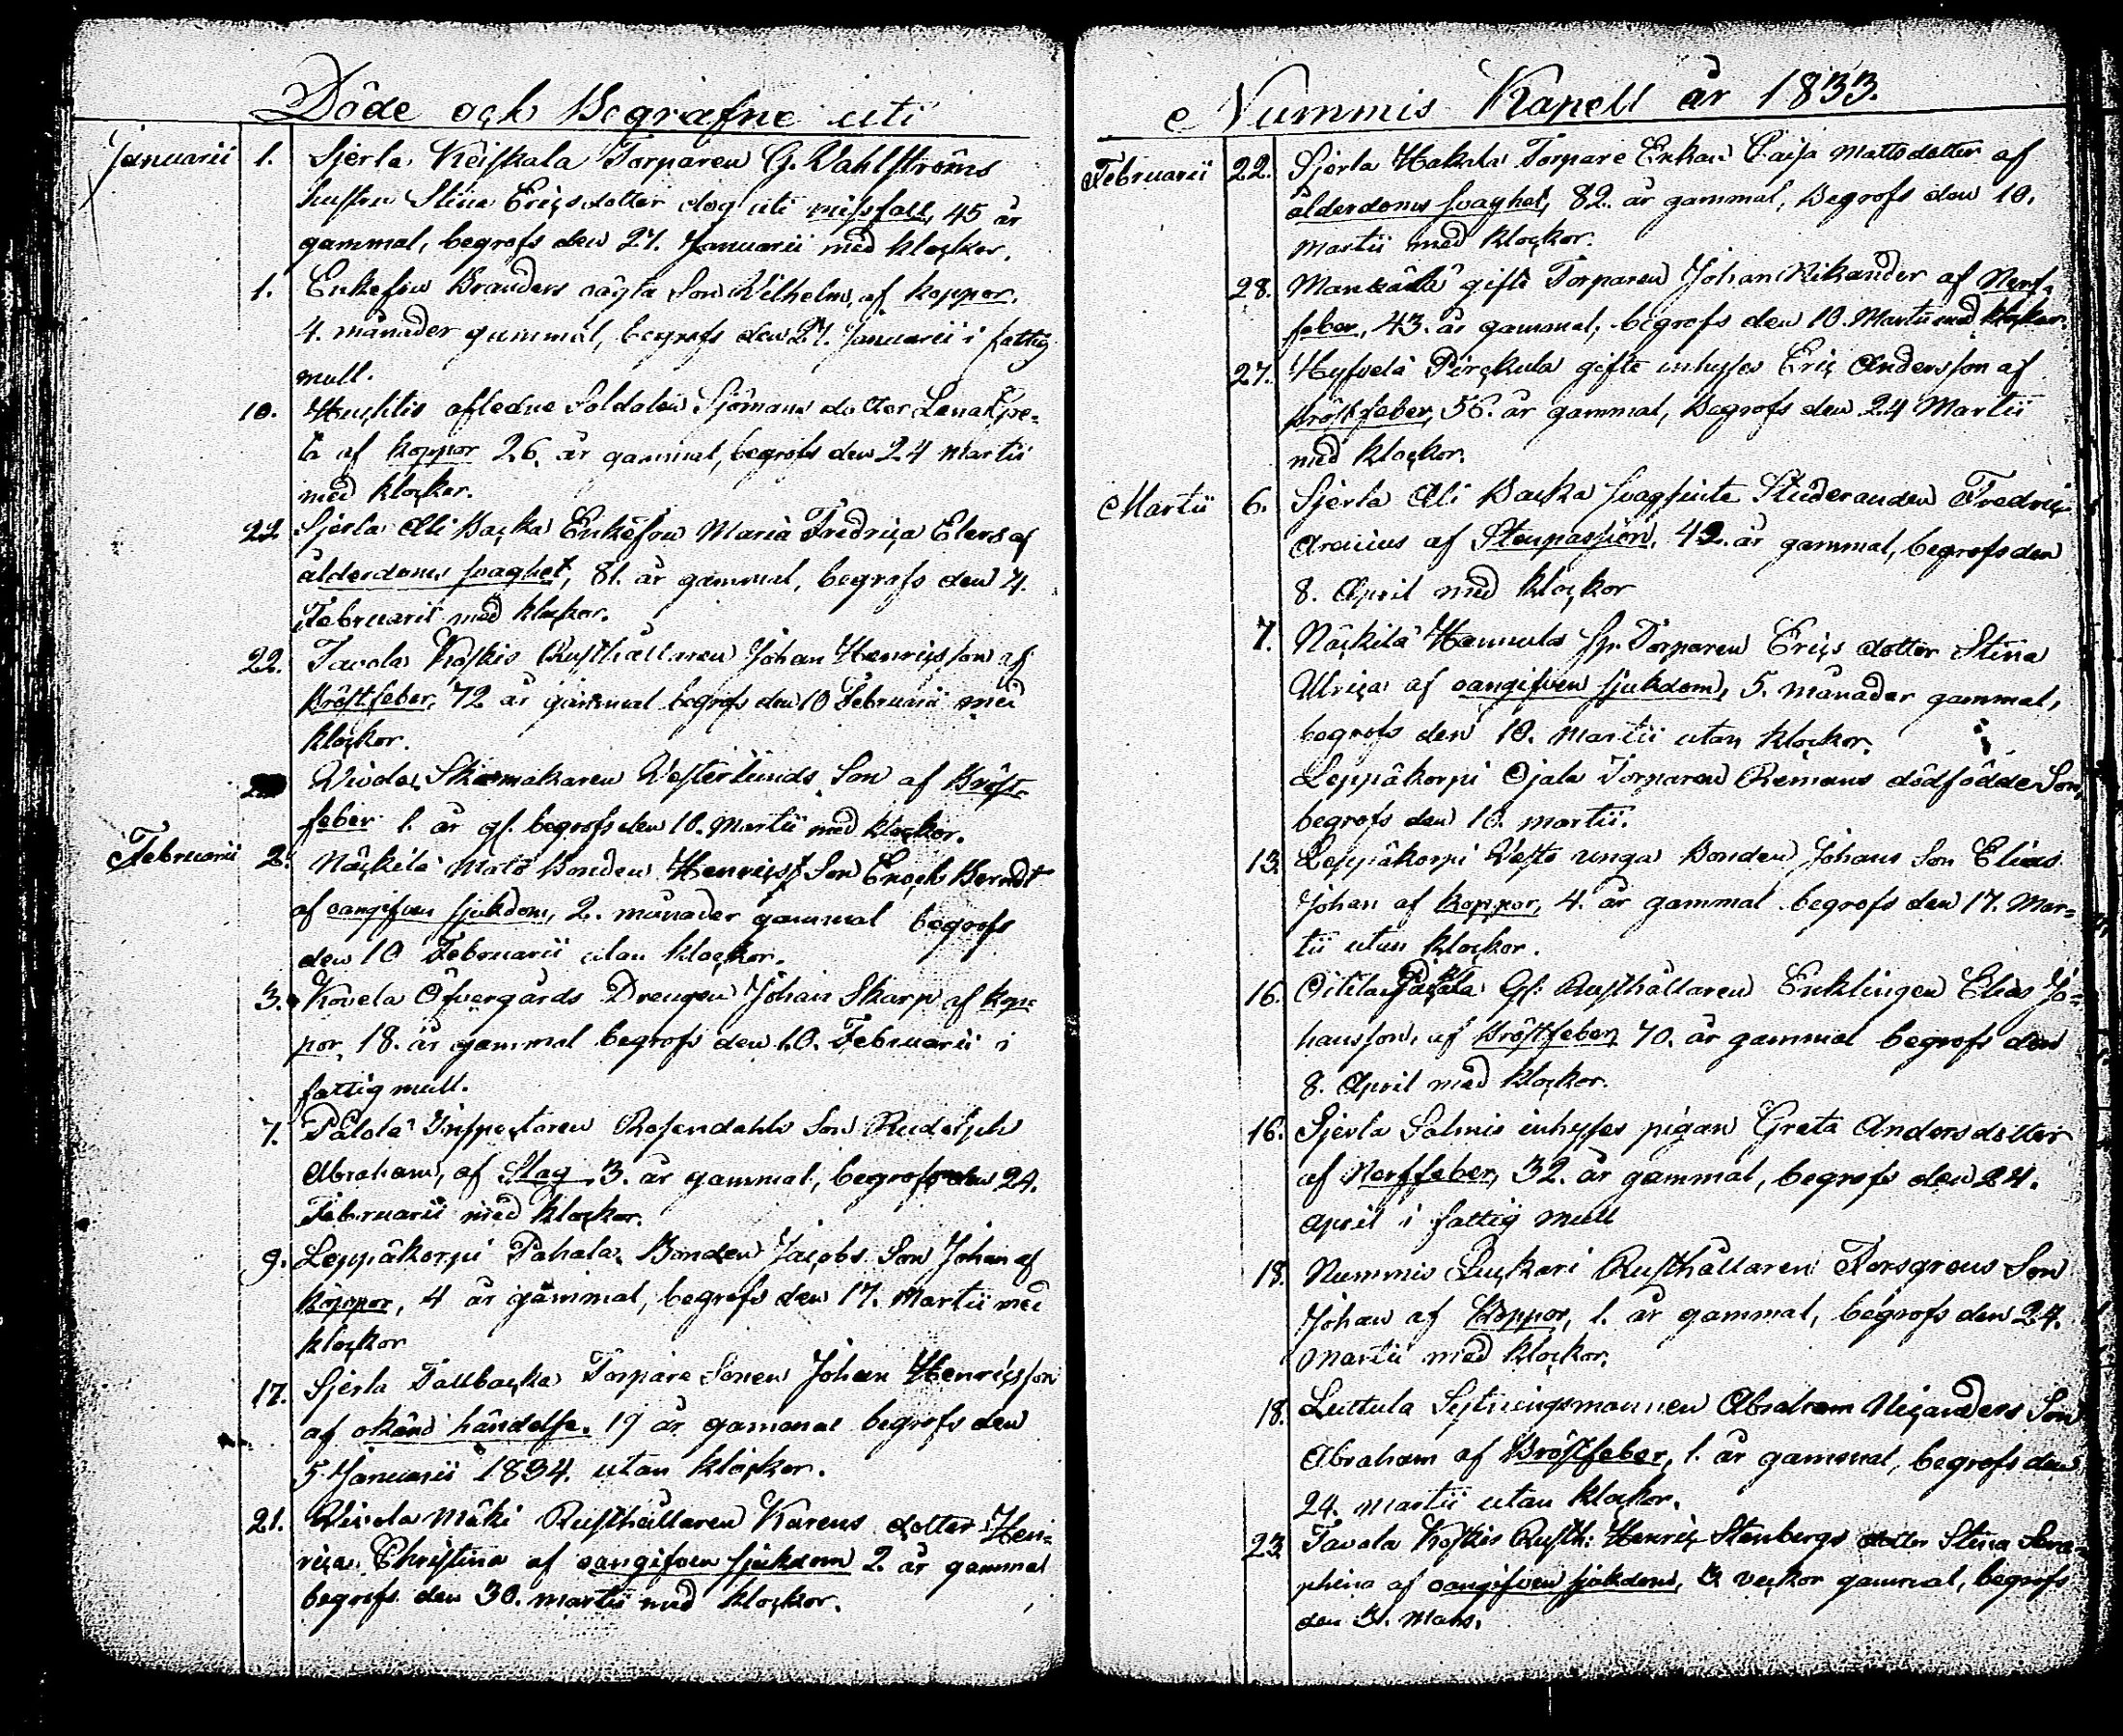 Döde och Begrafne uti
Januarii 1. Sjerla Keiskala Torparen G. Vahlströms
hustru Stina Ericsdotter dog uti missfall, 45 år
gammal, begrofs den 27. Januarii med klockor.
1. Enkefru Branders oägta Son Wilhelm, af koppor.
4. månader gammal, begrofs den 27. Januarii i fattig
mull.
10. Huhtis afledne Soldaten Sjömans dotter Lena Gre-
ta af koppor 26. år gammal, begrofs den 24 Martii
med klockor.
22 Sjerla Ali Backa Enkefru Maria Fredrica Elers af
ålderdoms svaghet, 81. år gammal, begrofs den 4.
Februarii med klockor.
22. Tavola Koskis Rusthållaren Johan Henricsson af
bröstfeber, 72 år gammal begrofs den 10 Februarii med
klockor.
Vivola Skomakaren Vesterlunds Son af Bröst-
feber 1. år gl. begrofs den 10. Martii med klockor.
Februarii 2. Näckilä Mats Bonden Henrics Son Enoch Berndt
af oangifven sjukdom, 2. månader gammal begrofs
den 10 Februarii utan klockor.
3. Kovela Öfvergårds Drengen Johan Skarp af kop-
por, 18. år gammal begrofs den 10. Februarii i
fattig mull.
7. Pålola Inspectoren Rosendahls Son Rudolph
Abraham, af Slag 3. år gammal, begrofs den 24.
Februarii med klockor.
9. Leppäkorpi Pahala Bonden Jacobs Son Johan af
koppor, 4 år gammal, begrofs den 17. Martii med
klockor
17. Sjerla Tallbacka Torpare Sonen Johan Henricsson
af okänd händelse. 19 år gammal begrofs den
5 Januarii 1834. utan klockor.
21. Vivola Mäki Rusthållaren Karens dotter Hen-
rica Christina af oangifven sjukdom 2. år gammal
begrofs den 30. martii med klockor.
Nummis Kapell år 1833.
Februarii 22. Sjerla Hakala Torpare Enkan Caisa Mattsdotter af
ålderdoms svaghet, 82. år gammal, Begrofs den 10.
Martii med klockor.
28. gifte Torparen Johan Nikander af Nerf-
feber, 43. år gammal, begrofs den 10. Martii med klockor.
27. Hyfvelä Pirckula gifte inhyses Eric Andersson af
bröstfeber, 56. år gammal, Begrofs den 24 Martii
med klockor.
Martii 6. Sjerla Ali Backa svagsinte Studeranden Fredric
Arenius af Stenpassion, 42. år gammal, begrofs den
8. April med klockor
7. Näckilä Hannula Sp. Torparen Erics dotter Stina
Ulrica af oangifven sjukdom, 5. månader gammal,
begrofs den 10. Martii utan klockor.
Leppäkorpi Ojala Torparen Remans dödfödde Son,
begrofs den 10. martii.
13. Leppäkorpi unga Bonden Johans Son Elias
Johan af koppor, 4. år gammal begrofs den 17. Mar-
tii utan klockor.
16. Oitila Gl. Rusthållaren Enklingen Elias Jo-
hansson, af bröstfeber 70. år gammal begrofs den
8. April med klockor.
16. Sjerla Salmis inhyses pigan Greta Andersdotter
af Nerffeber, 32. år gammal, begrofs den 24.
April i fattig mull
18. Nummis Luckari Rusthållaren Forsgrens Son
Johan af Koppor, 1. år gammal, begrofs den 24.
Martii med klockor.
18. Luttula Sytningsmannen Abraham Nicanders Son
Abraham af Bröstfeber, 1. år gammal, begrofs den
24. Martii utan klockor.
23. Tavola Koskis Rusth: Henric Stenbergs dotter Stina Sera-
phina af oangifven sjukdom, 3 veckor gammal, begrofs
den 31. Mars.